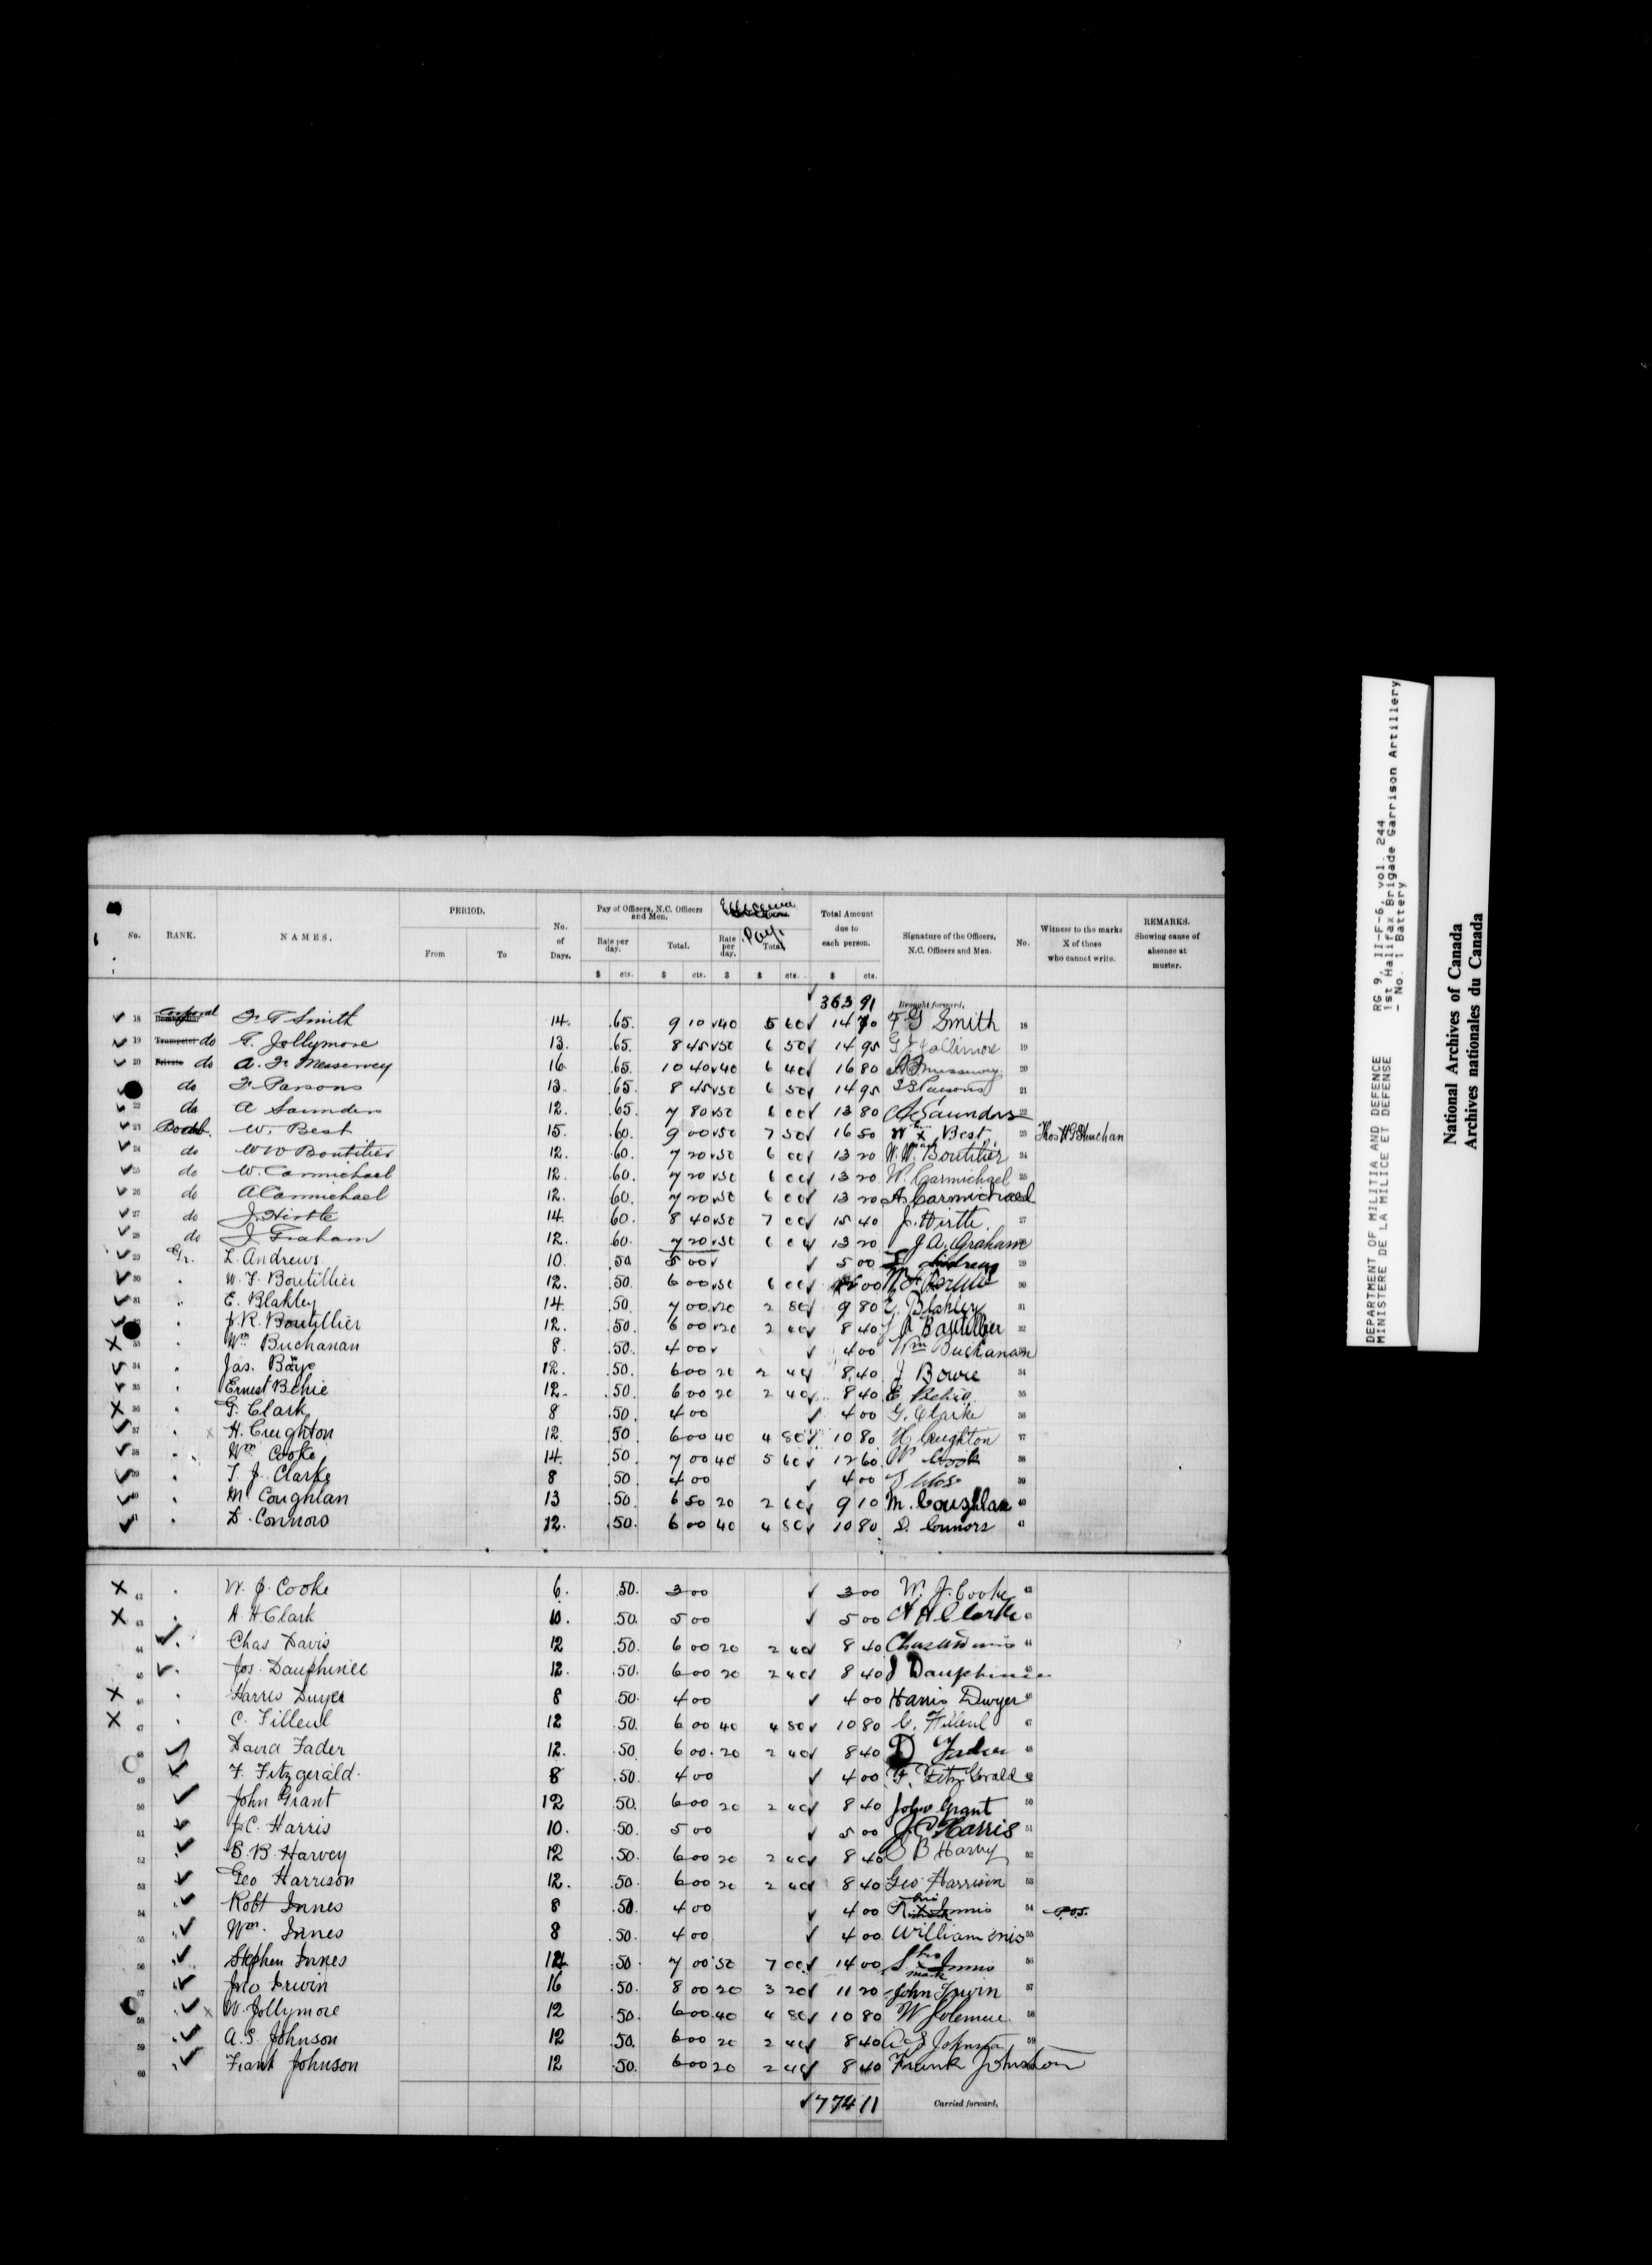 No.
RANK.
NAMES.
PERIOD.
From
To
No. of Days.
Pay of Officers, N.C. Officers and Men.
Rate per day.
$ cts.
Total.
$ cts.
Pay.
Rate per day.
$
Total
$ cts.
Total Amount due to each person.
$ cts.
Signature of the Officers, N.C. Officers and Men.
No.
Witness to the marks X of those who cannot write.
REMARKS. Showing cause of absence at muster.
363 91 Brought forward,
18 Corporal F. G Smith 14. .65. 9 10 40 5 60 14 70 F G Smith 18
19 Trumpeter do G. Jollymore 13. .65. 8 45 50 6 50 14 95 G Jollimore 19
20 Private do A. F. Messervey 16. .65. 10 40 40 6 40 16 80 20
do F. Parsons 13. .65. 8 45 50 6 50 14 95 Parsons 21
22 do A Saunders 12. .65. 7 80 50 6 00 13 80 A Saunders 22
23 Bomb. W. Best 15. .60. 9 00 50 7 50 16 50 W X Best 23
24 do W W Boutilier 12. .60. 7 20 50 6 00 13 20 W. W. Boutilier 24
25 do W. Carmichael 12. .60. 7 20 50 6 00 13 20 W. Carmichael 25
26 do A Carmichael 12. .60. 7 20 50 6 00 13 20 A. Carmichael
27 do J. Hirtle 14. .60. 8 40 50 7 00 15 40 J. Hirtle. 27
28 do J. Graham 12. .60. 7 20 50 6 00 13 20 J A. Graham
29 Gr. L. Andrews 10. .50 5 00 5 00 Andrews 29
30 " W. F. Boutillier 12. .50. 6 00 50 6 00 00 30
31 " E. Blakley 14. .50. 7 00 20 2 80 9 80 E. Blakley 31
" J. R. Boutillier 12. .50. 6 00 20 2 40 8 40 J R Boutillier 32
X 33 " Wm Buchanan 8. .50. 4 00 4 00 Wm Buchanan
34 " Jas. Bowe 12. .50. 6 00 20 2 40 8 40 J Bowie 34
35 " Ernest Behie 12. .50. 6 00 20 2 40 8 40 E Behie 35
X 36 " G. Clark 8 .50. 4 00 4 00 G. Clarke 36
37 " x H. Creighton 12. .50. 6 00 40 4 80 10 80 H Creighton 37
38 " Wm Cooke 14. .50 7 00 40 5 60 12 60 W Cook 38
39 " T. J. Clarke 8 .50 4 00 4 00 39
40 " M Coughlan 13 .50. 6 50 20 2 60 9 10 M. Coughlan 40
41 " D. Connors 12. .50. 6 00 40 4 80 10 80 D. Connors 41
X 42 " W. J. Cooke 6. .50. 3 00 3 00 W. J. Cooke 42
X 43 " A. H Clark 10. .50. 5 00 5 00 A H Clarke 43
44 " Chas Davis 12 .50. 6 00 20 2 40 8 40 44
45 " Jos. Dauphinee 12. .50. 6 00 20 2 40 8 40 J Dauphinee 45
X 46 " Harris Dwyer 8 .50. 4 00 4 00 Harris Dwyer 46
X 47 " C. Filleul 12 .50. 6 00 40 4 80 10 80 C. Filleul 47
48 David Fader 12. .50. 6 00 20 2 40 8 40 D Fader 48
49 F. Fitzgerald 8 .50. 4 00 4 00 F. FitzGerald 49
50 John Grant 12 .50. 6 00 20 2 40 8 40 John Grant 50
51 J. C. Harris 10. .50. 5 00 5 00 J. C. Harris 51
52 S. B. Harvey 12 .50. 6 00 20 2 40 8 40 S B Harvey 52
53 Geo Harrison 12. .50. 6 00 20 2 40 8 40 Geo Harrison 53
54 Robt Innes 8 .50. 4 00 4 00 R X Innis 54
55 Wm. Innes 8 .50. 4 00 4 00 William 55
56 Stephen Innes 14 .50. 7 00 50 7 00 14 00 S X Innis mark 56
57 Jno Irwin 16 .50. 8 00 20 3 20 11 20 John Irwin 57
58 x W. Jollymore 12 .50. 6 00 40 4 80 10 80 W 58
59 A. S. Johnson 12 .50. 6 00 20 2 40 8 40 A S Johnson 59
60 Frank Johnson 12 .50. 6 00 20 2 40 8 40 Frank Johnston
774 11 Carried forward,
DEPARTMENT OF MILITIA AND DEFENCE
MINISTERE DE LA MILICE ET DEFENSE
RG 9, II-F-6, vol. 244
1st Halifax Brigade Garrison Artillery
-No. 1 Battery
National Archives of Canada
Archives nationales du Canada